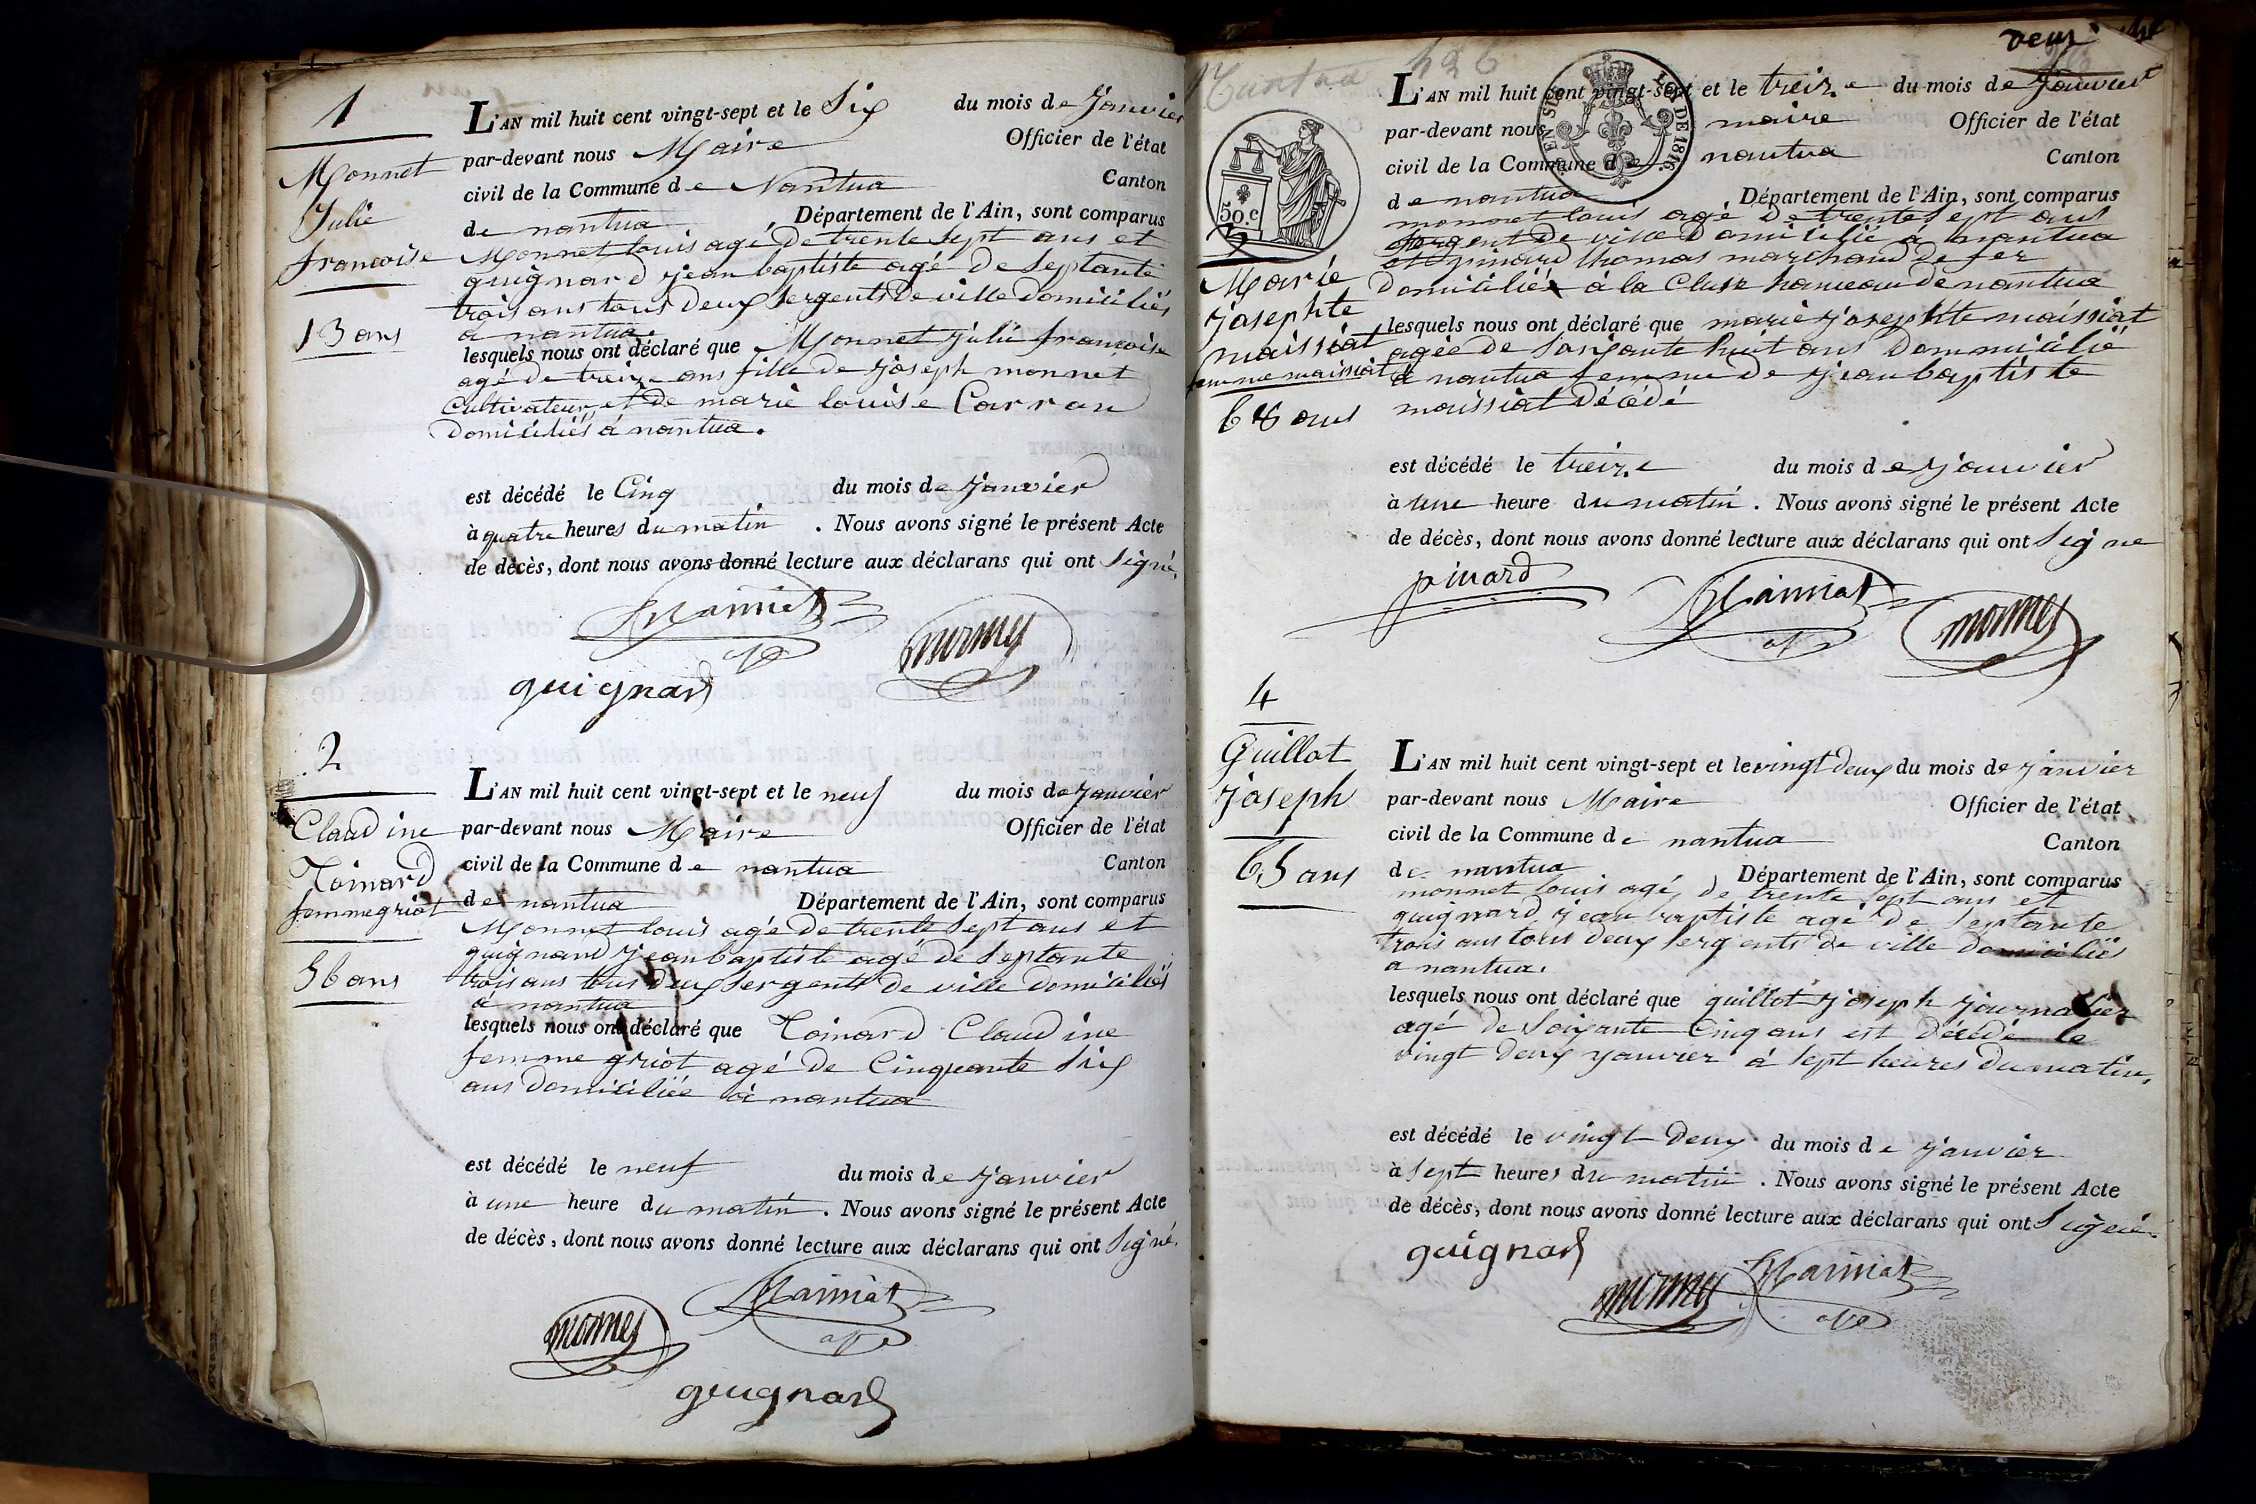 1
Monnet
Julie
francoise
13 ans
L'AN mil huit cent vingt-sept et le Six du mois de Janvier
par-devant nous Maire Officier de l'état
civil de la Commune de Nantua Canton
de nantua, Département de l'Ain, sont comparus
Monnet louis agé de trente sept ans et
guignard jean baptiste agé de septante
trois ans tous deux sergents de ville domiciliés
a nantua.
lesquels nous ont déclaré que Monnet Julie francoise
agé de treize ans fille de joseph monnet
Cultivateur et de marie louise Carran
Domiciliés á nantua.
est décédé le Cinq du mois de janvier
à quatre heures du matin. Nous avons signé le présent Acte
de décès, dont nous avons donné lecture aux déclarans qui ont Signé.
guignard
2
Claudine
Toinard
femme griot
56 ans
L'AN mil huit cent vingt-sept et le neuf du mois de Janvier
par-devant nous Maire Officier de l'état
civil de la Commune de nantua Canton
de nantua Département de l'Ain, sont comparus
Monnet louis agé de trente sept ans et
guignard jean baptiste agé de septante
trois ans tous deux sergents de ville domiciliés
a nantua
lesquels nous ont déclaré que Toinard Claudine
femme griot agé de Cinquante Six
ans Domiciliée à nantua
est décédé le neuf du mois de janvier
à une heure du matin. Nous avons signé le présent Acte
de décès, dont nous avons donné lecture aux déclarans qui ont Signé.
monnet
guignard
deux
426
LOI DE 1816.
50 c
Marie
Josephte
maissiat
femme maissiat
68 ans
L'AN mil huit cent vingt-sept et le treize du mois de Janvier
par-devant nous maire Officier de l'état
civil de la Commune de nantua Canton
de nantua Département de l'Ain, sont comparus
monnet louis agé de trente sept ans
sergent de ville domicilié á nantua
et pinard thomas marchand de fer
domicilié á la Cluse hameau de nantua
lesquels nous ont déclaré que marie josephte maissiat
agée de soixante huit ans Dommicilié
á nantua femme de jean baptiste
maissiat décédé
est décédé le treize du mois de janvier
à une heure du matin. Nous avons signé le présent Acte
de décès, dont nous avons donné lecture aux déclarans qui ont signe
pinard
monnet
4
Guillot
Joseph
65 ans
L'AN mil huit cent vingt-sept et le vingt deux du mois de janvier
par-devant nous Maire Officier de l'état
civil de la Commune de nantua Canton
de nantua Département de l'Ain, sont comparus
monnet louis agé de trente sept ans et
guignard jean baptiste agé de septante
trois ans tous deux sergents de ville domiciliés
a nantua.
lesquels nous ont déclaré que guillot joseph journalier
agé de soixante Cinq ans est décédé le
vingt deux janvier á sept heures du matin,
est décédé le vingt deux du mois de janvier
à sept heures du matin. Nous avons signé le présent Acte
de décès, dont nous avons donné lecture aux déclarans qui ont Signé.
guignard